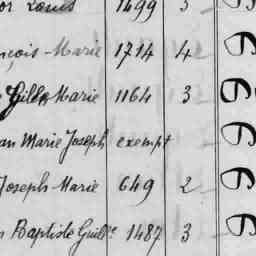 or Louis 1499 3
nçois-Marie 1714 4
Gilles Marie 1164 3
an Marie Joseph exempt
Joseph-Marie 649 2
n Baptiste Guille 1487 3